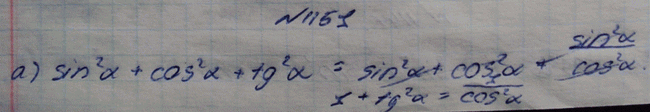 N1151
a) sin²α + cos²α + tg²α = sin²α + cos²α + sin²α/cos²α.
1 + tg²α = 1/cos²α